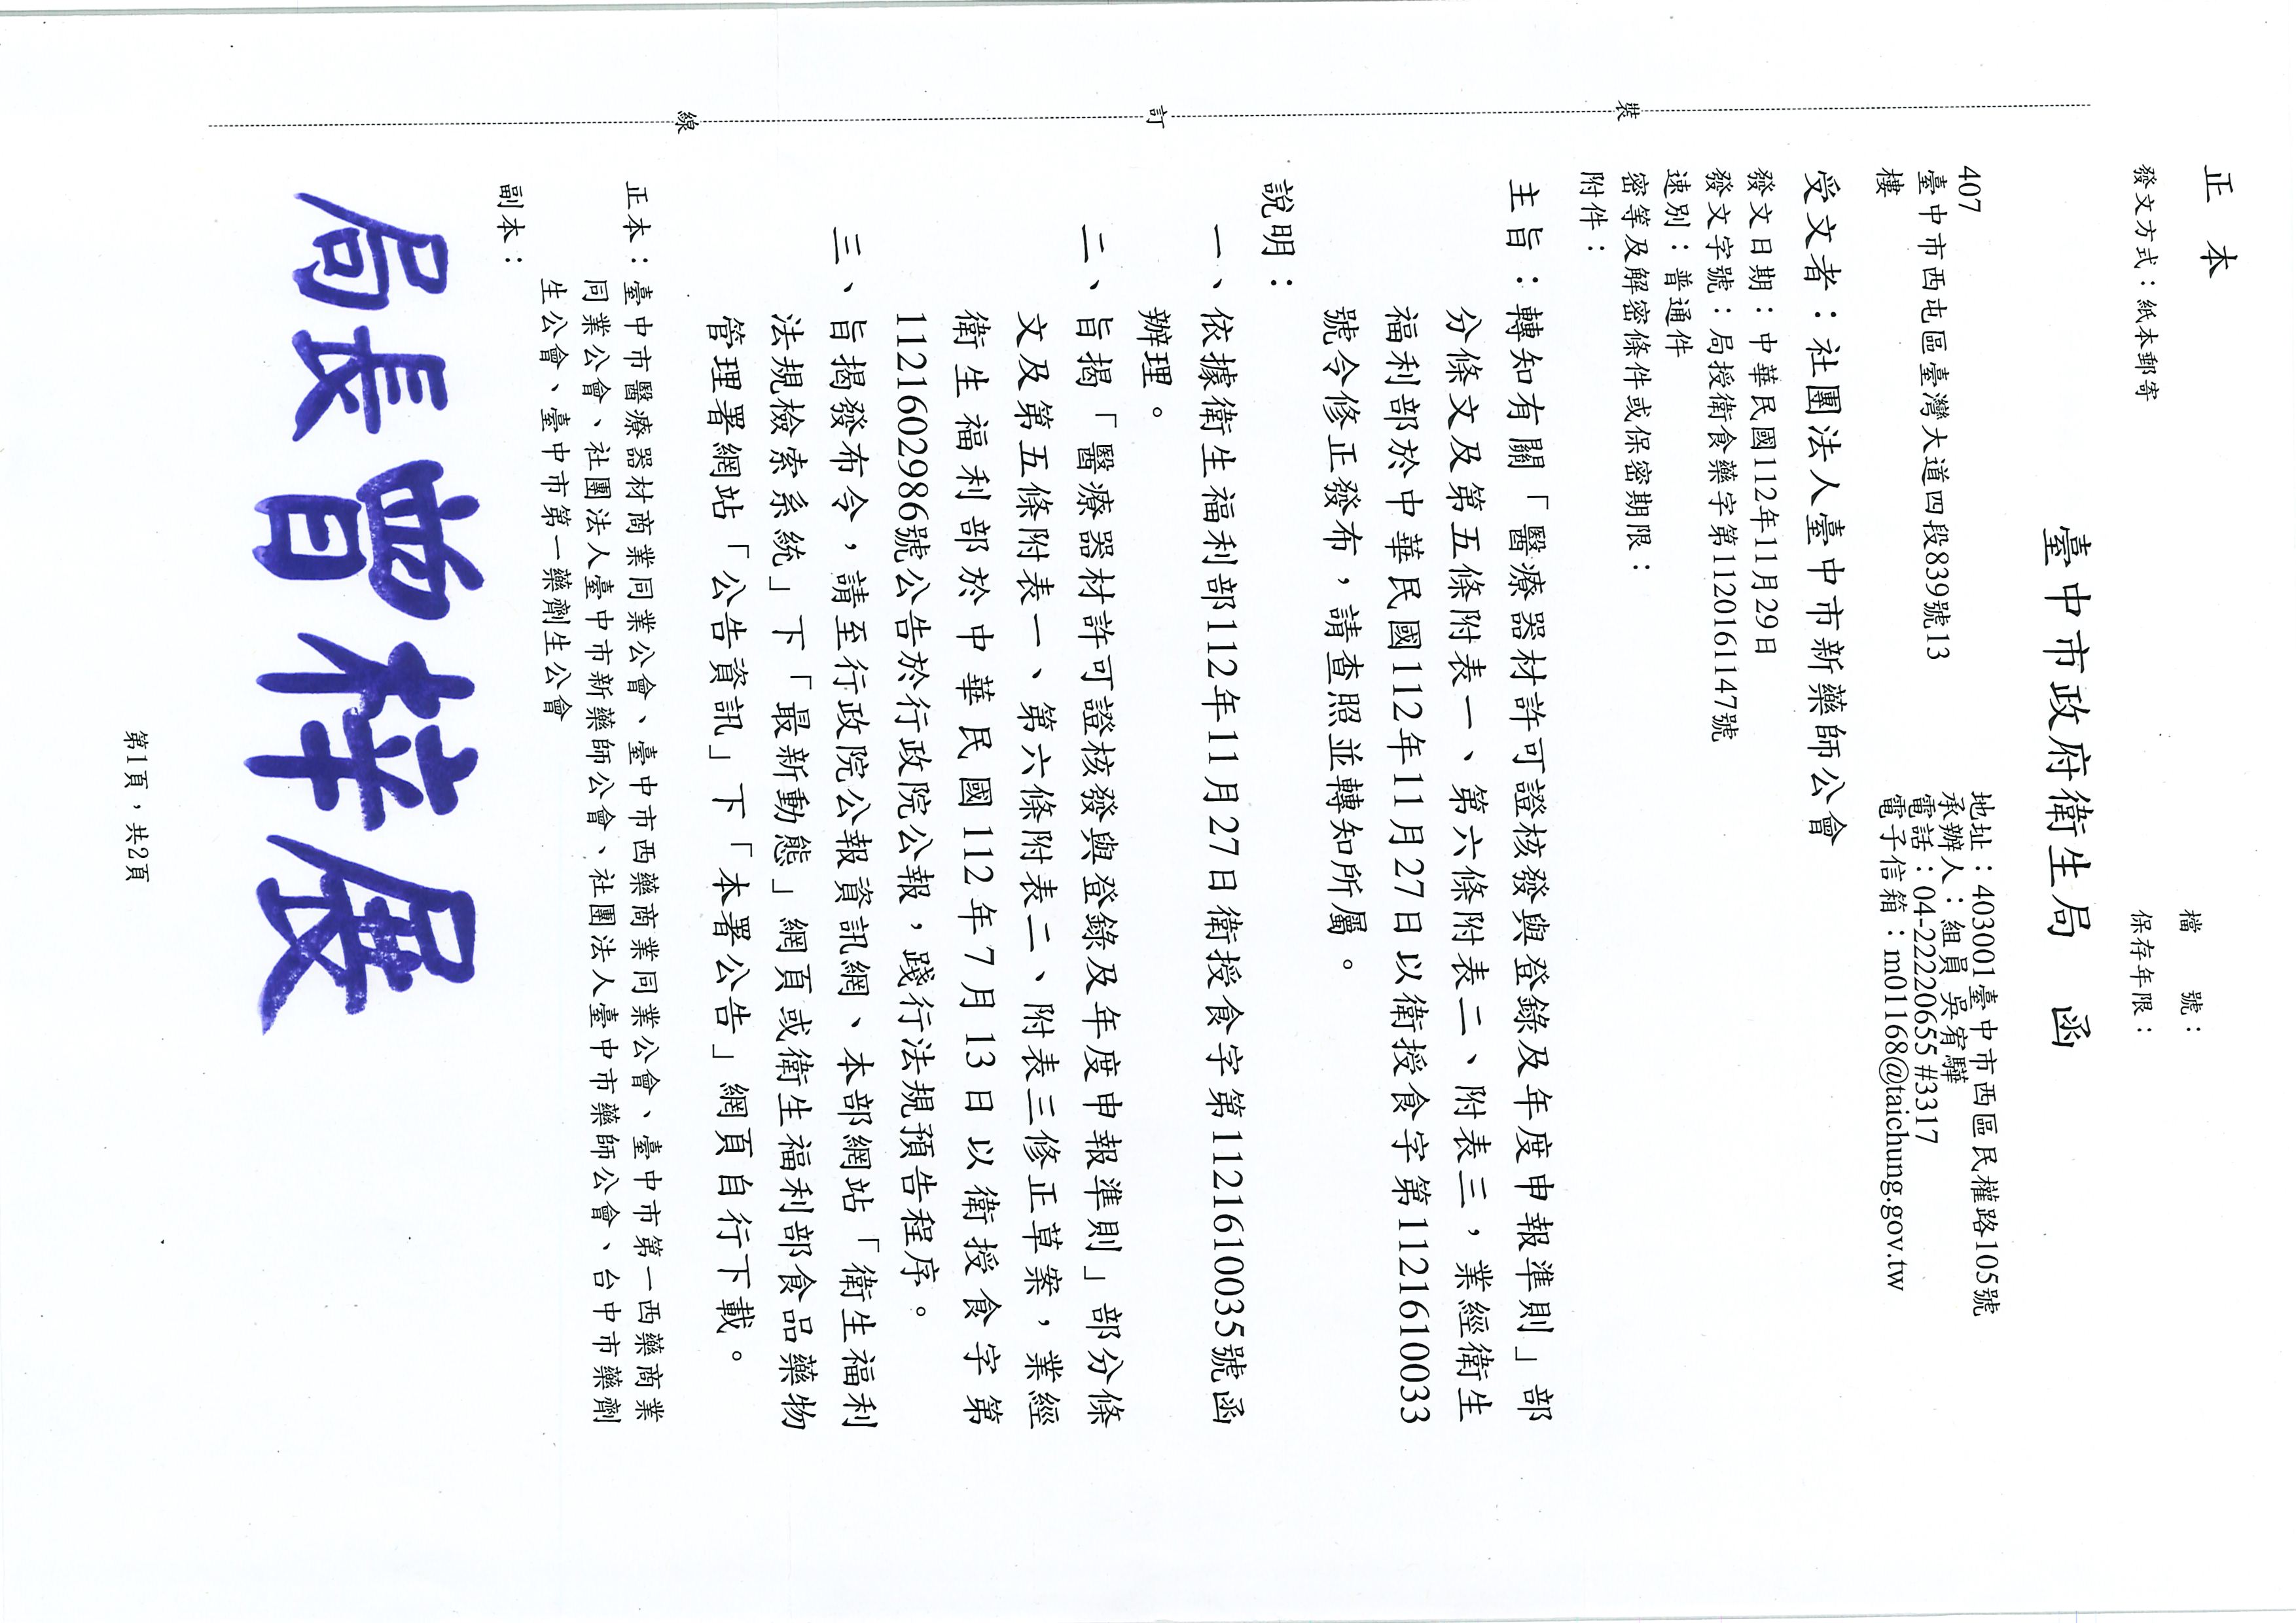 正本
檔 號：
保存年限：
發文方式：紙本郵寄
臺中市政府衛生局 函
地址：403001臺中市西區民權路105號
承辦人：組員 吳宥驊
電話：04-22220655 #3317
電子信箱：m01168@taichung.gov.tw
407
臺中市西屯區臺灣大道四段839號13
樓
受文者：社團法人臺中市新藥師公會
發文日期：中華民國112年11月29日
發文字號：局授衛食藥字第1120161147號
速別：普通件
密等及解密條件或保密期限：
附件：
主旨：轉知有關「醫療器材許可證核發與登錄及年度申報準則」部
分條文及第五條附表一、第六條附表二、附表三，業經衛生
福利部於中華民國112年11月27日以衛授食字第1121610033
號令修正發布，請查照並轉知所屬。
說明：
一、依據衛生福利部112年11月27日衛授食字第1121610035號函
辦理。
二、旨揭「醫療器材許可證核發與登錄及年度申報準則」部分條
文及第五條附表一、第六條附表二、附表三修正草案，業經
衛生福利部於中華民國112年7月13日以衛授食字第
1121602986號公告於行政院公報，踐行法規預告程序。
三、旨揭發布令，請至行政院公報資訊網、本部網站「衛生福利
法規檢索系統」下「最新動態」網頁或衛生福利部食品藥物
管理署網站「公告資訊」下「本署公告」網頁自行下載。
正本：臺中市醫療器材商業同業公會、臺中市西藥商業同業公會、臺中市第一西藥商業
同業公會、社團法人臺中市新藥師公會、社團法人臺中市藥師公會、台中市藥劑
生公會、臺中市第一藥劑生公會
副本：
局長曾梓展
第1頁，共2頁
裝
訂
線